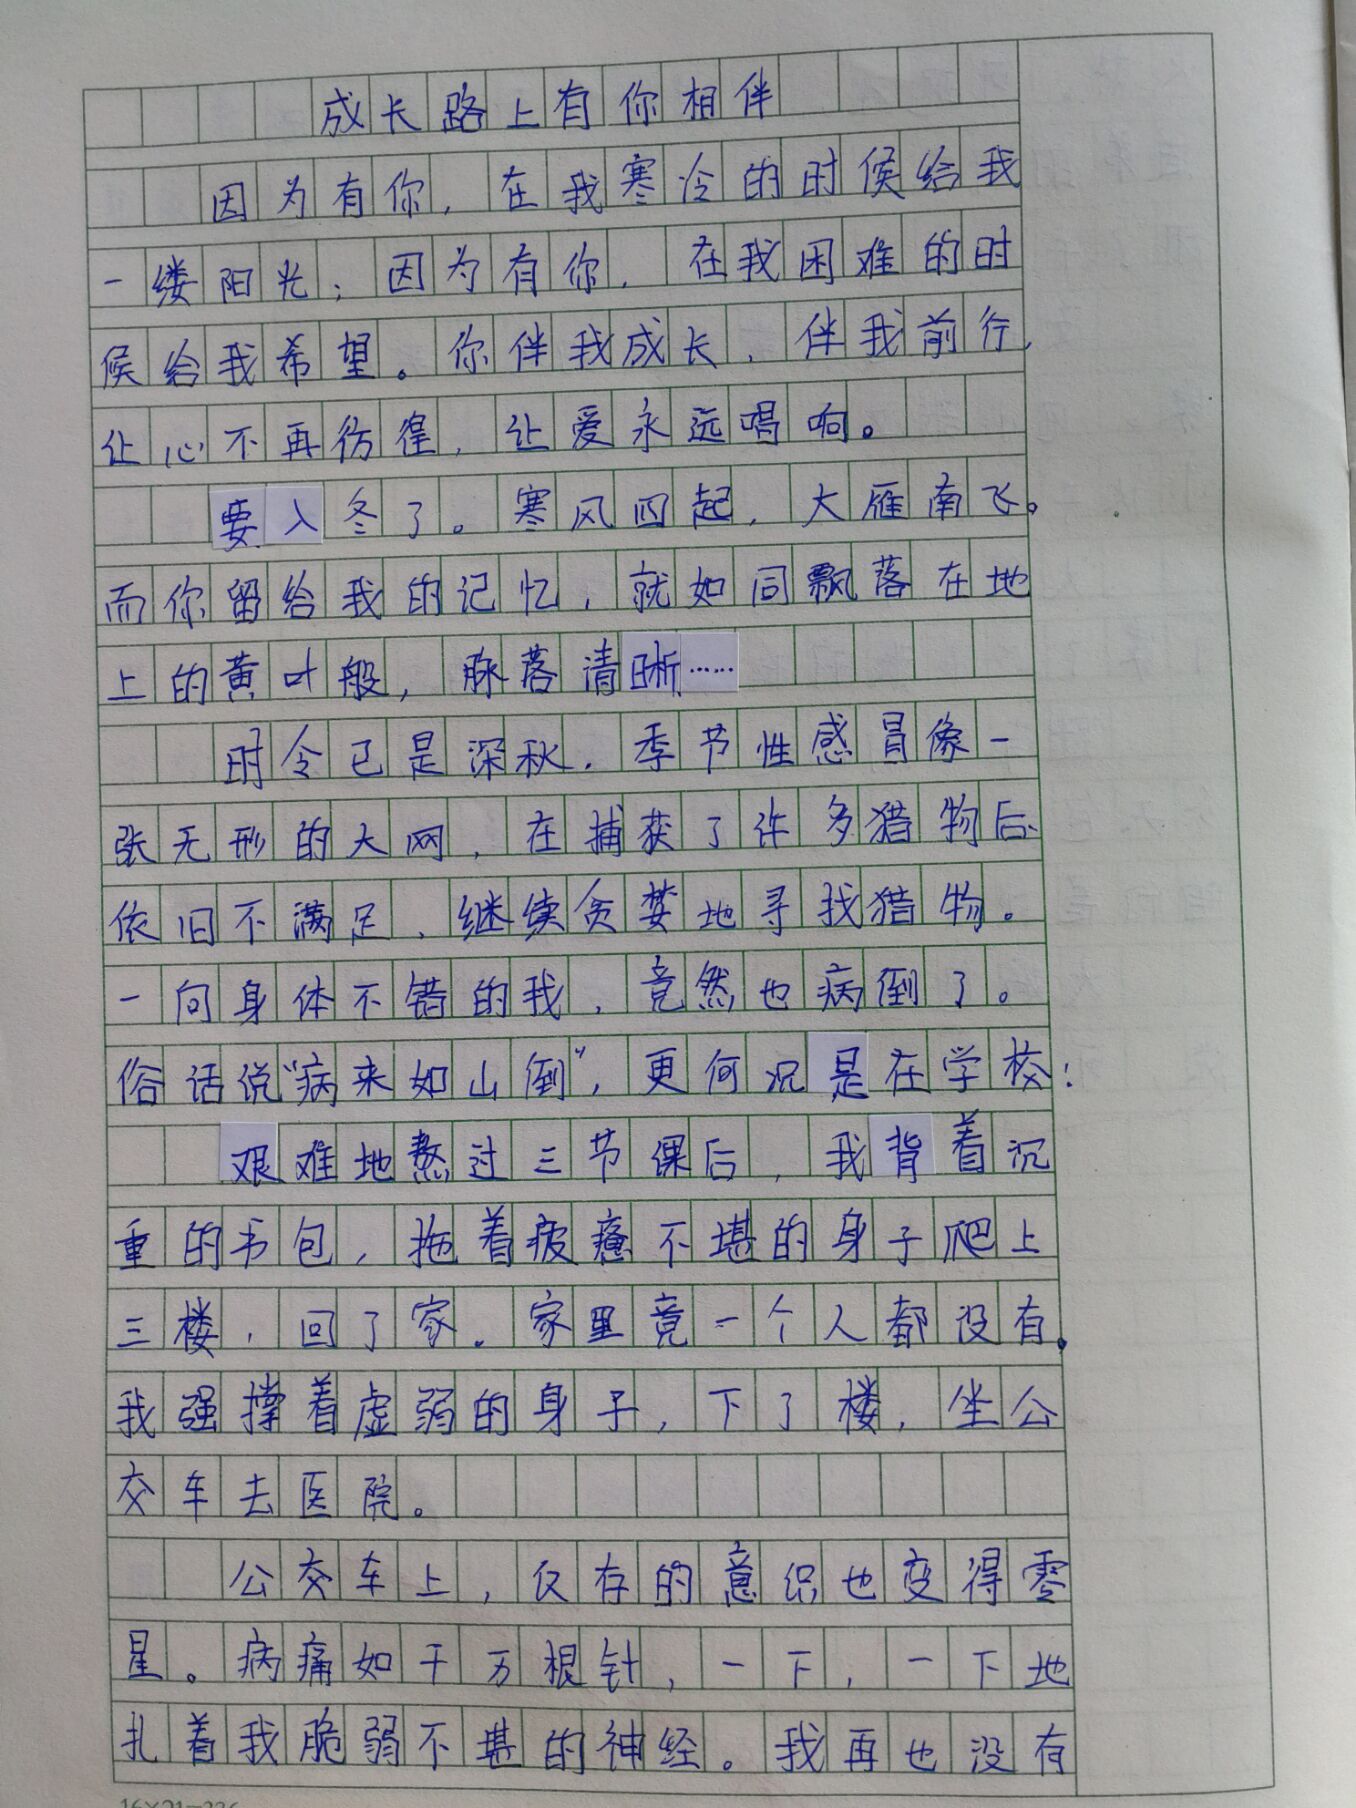 成长路上有你相伴
因为有你，在我寒冷的时候给我
一缕阳光；因为有你，在我困难的时
候给我希望。你伴我成长，伴我前行，
让心不再彷徨，让爱永远唱响。
要入冬了。寒风四起，大雁南飞。
而你留给我的记忆，就如同飘落在地
上的黄叶般，脉落清晰……
时令已是深秋，季节性感冒像一
张无形的大网，在捕获了许多猎物后
依旧不满足，继续贪婪地寻找猎物。
一向身体不错的我，竟然也病倒了。
俗话说“病来如山倒”，更何况是在学校！
艰难地熬过三节课后，我背着沉
重的书包，拖着疲惫不堪的身子爬上
三楼，回了家。家里竟一个人都没有。
我强撑着虚弱的身子，下了楼，坐公
交车去医院。
公交车上，仅存的意识也变得零
星。病痛如千万根针，一下，一下地
扎着我脆弱不堪的神经。我再也没有